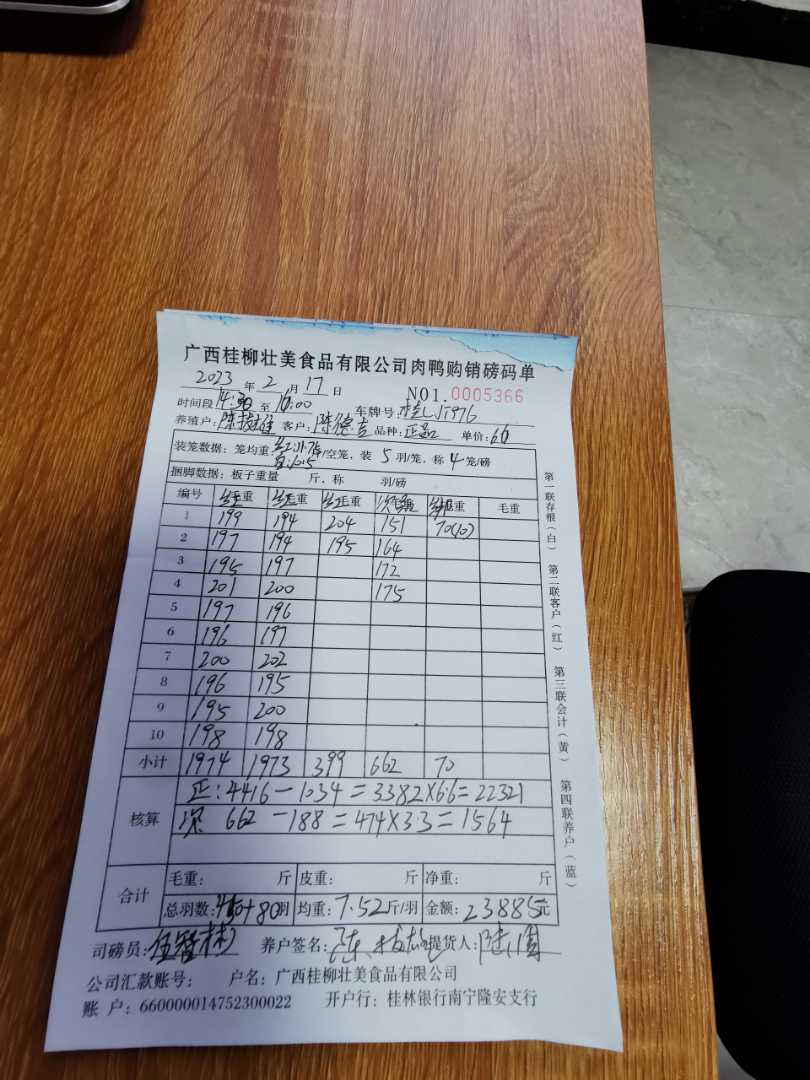 广西桂柳壮美食品有限公司肉鸭购销磅码单
2023年2月17日 NO1.0005366
时间段 至16:00 车牌号:桂
养殖户: 客户:陈德 品种:正品 单价:6.6
装笼数据:笼均重: /空笼,装5羽/笼,称4笼/磅
捆脚数据:板子重量 斤,称 羽/磅
编号 毛重 毛重 毛重 重 重 毛重
1 199 194 204 151 70(10)
2 197 194 195 164
3 195 197 172
4 201 200 175
5 197 196
6 196 197
7 200 202
8 196 195
9 195 200
10 198 198
小计 1974 1973 399 662 70
核算 正:4416-1034=3382×6.6=22321
次 662-188=474×3.3=1564
合计 毛重: 斤 皮重: 斤 净重: 斤
总羽数: +80羽 均重:7.52斤/羽 金额:23885元
司磅员: 养户签名: 提货人:
公司汇款账号: 户名:广西桂柳壮美食品有限公司
账 户:660000014752300022 开户行:桂林银行南宁隆安支行
第一联存根(白) 第二联客户(红) 第三联会计(黄) 第四联养户(蓝)